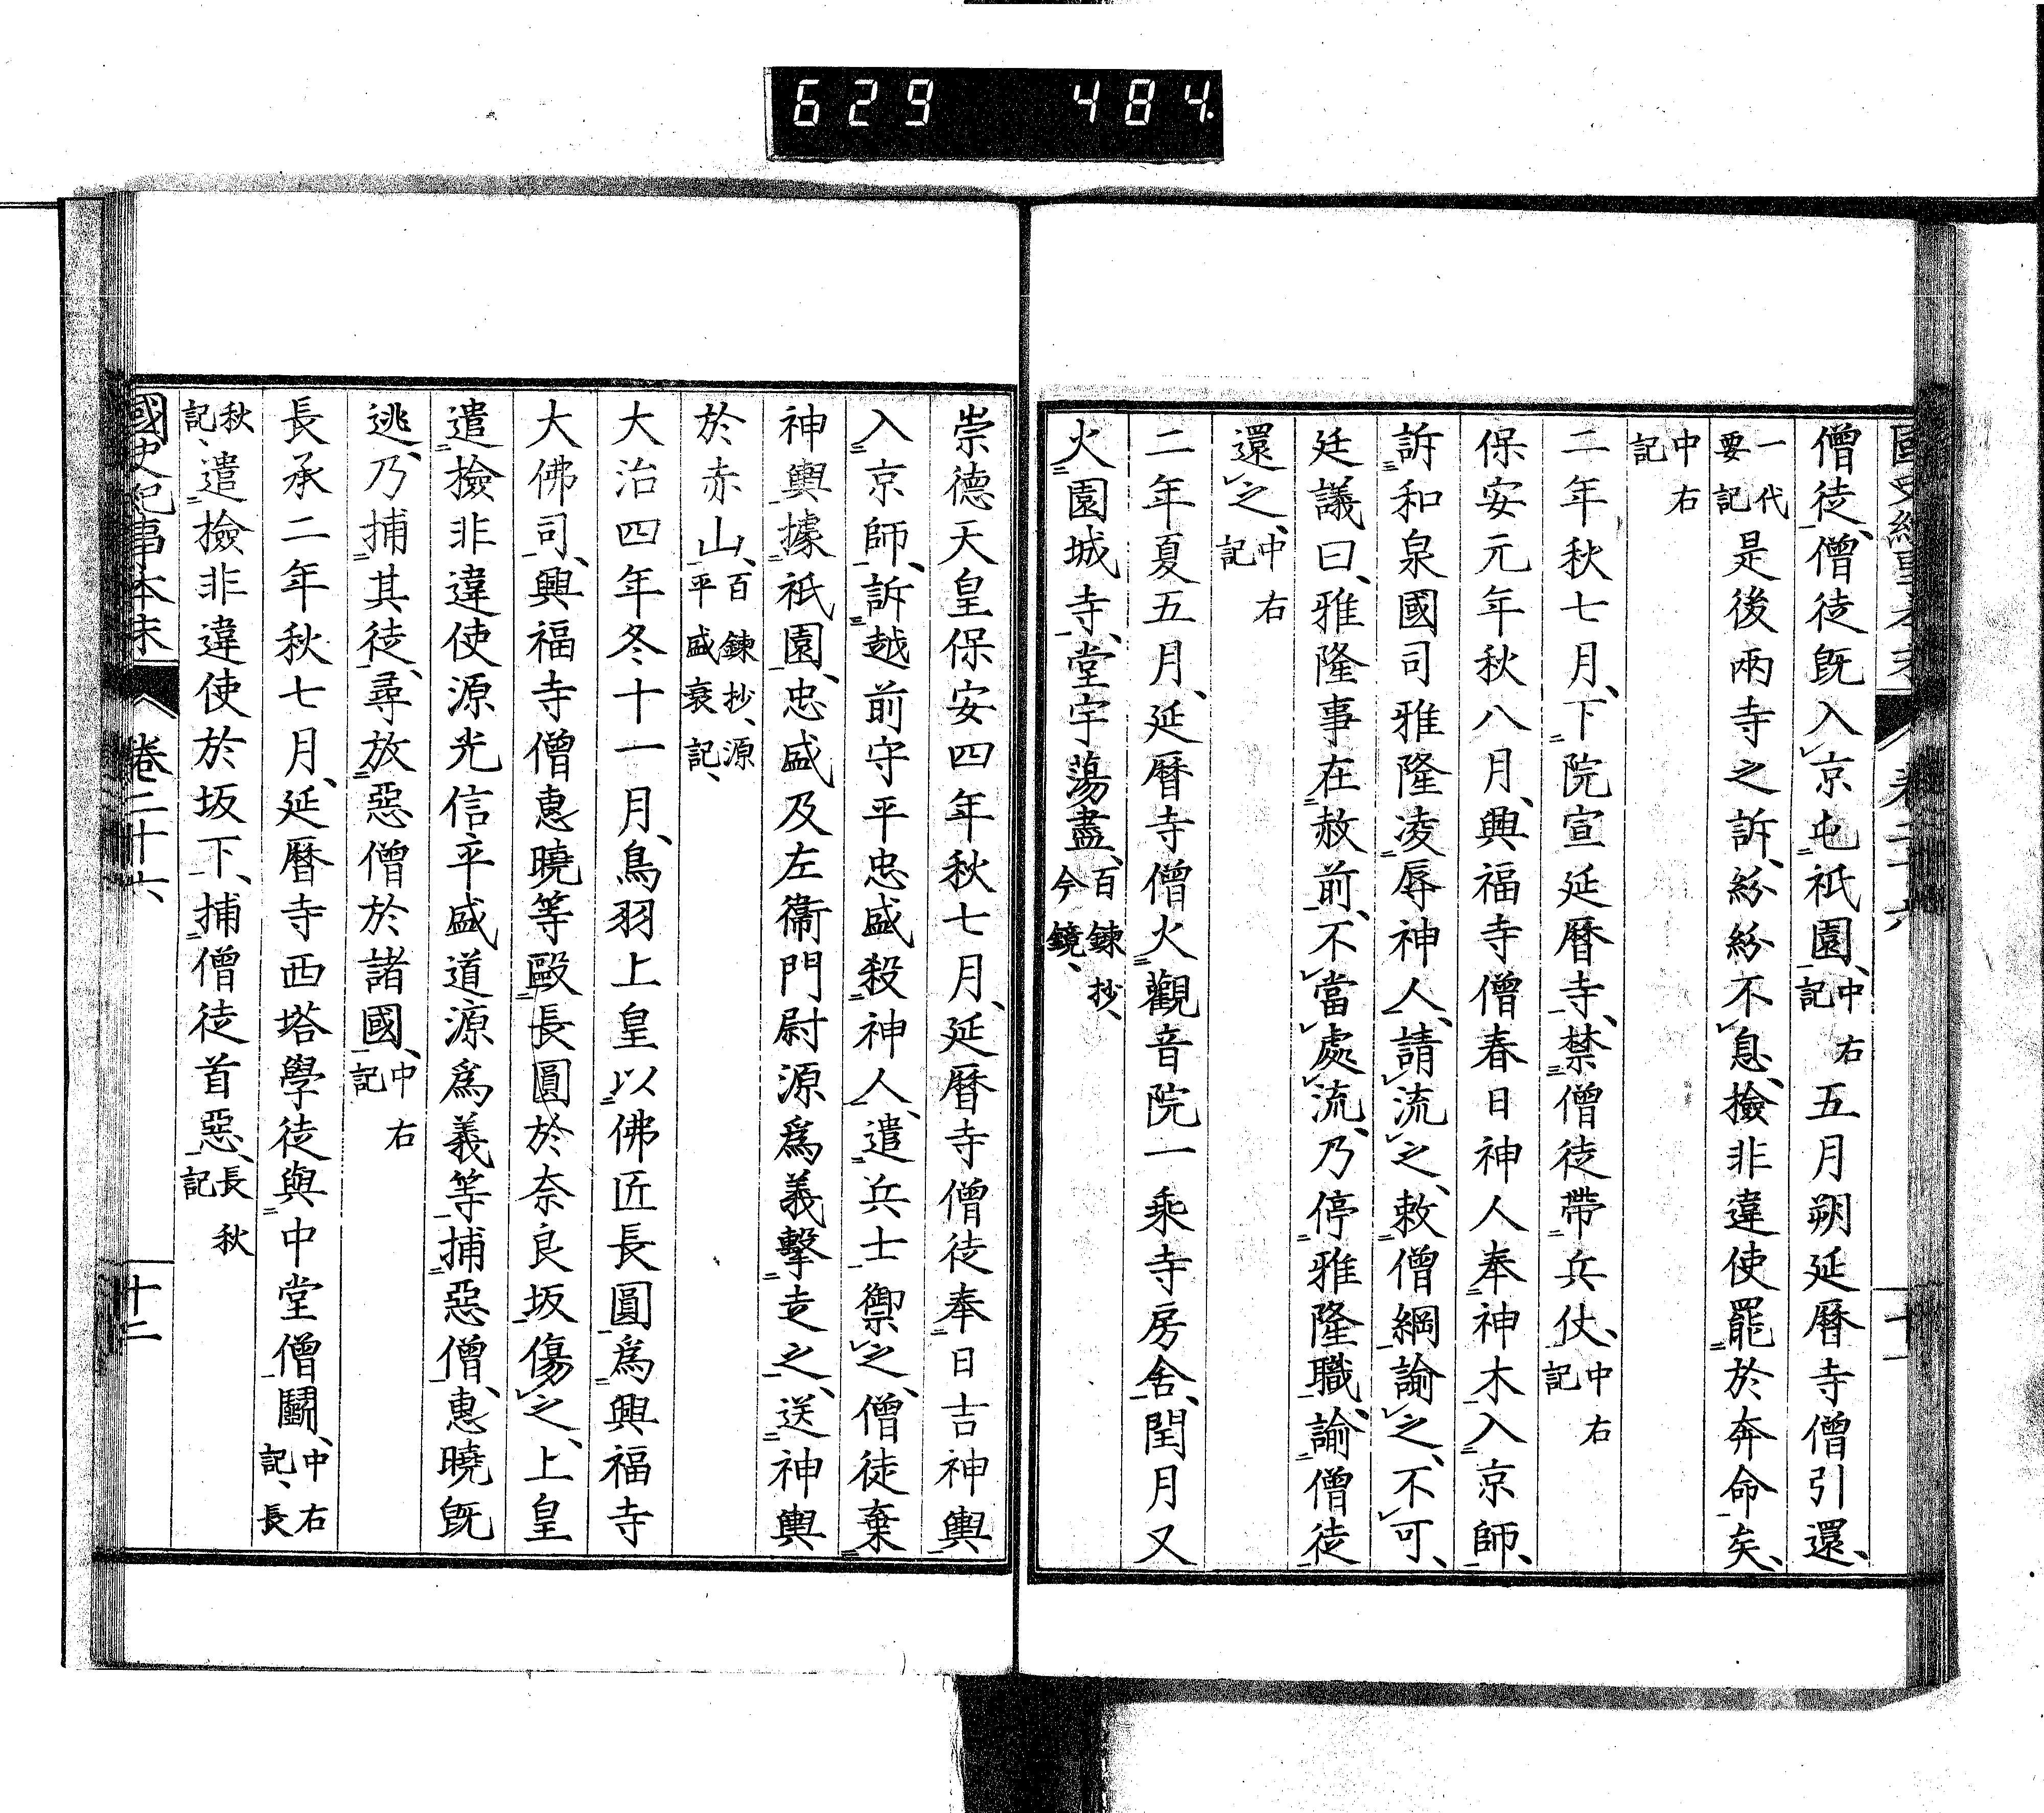 629 484.
國史紀事本末 卷二十六 十一
僧徒、僧徒既入京屯祇園、中右記五月朔延暦寺僧引還、
一代要記是後兩寺之訴、紛紛不息、撿非違使罷於奔命矣、
中右記
二年秋七月、下院宣延暦寺、禁僧徒帶兵仗、中右記
保安元年秋八月、興福寺僧春日神人奉神木入京師、
訴和泉國司雅隆凌辱神人、請流之、敕僧綱諭之、不可、
廷議曰、雅隆事在赦前、不當處流、乃停雅隆職、諭僧徒
還之、中右記
二年夏五月、延暦寺僧火觀音院一乘寺房舍、閏月又
火園城寺、堂宇蕩盡、百鍊抄、今鏡、
崇德天皇保安四年秋七月、延暦寺僧徒奉日吉神輿
入京師、訴越前守平忠盛殺神人、遣兵士禦之、僧徒棄
神輿據祇園、忠盛及左衞門尉源爲義擊走之、送神輿
於赤山、百鍊抄、源平盛衰記、
大治四年冬十一月、鳥羽上皇以佛匠長圓爲興福寺
大佛司、興福寺僧惠曉等毆長圓於奈良坂傷之、上皇
遣撿非違使源光信平盛道源爲義等捕惡僧、惠曉既
逃、乃捕其徒、尋放惡僧於諸國、中右記
長承二年秋七月、延暦寺西塔學徒與中堂僧鬬、中右記、長
秋記、遣撿非違使於坂下、捕僧徒首惡、長秋記
國史紀事本末 卷二十六 十二